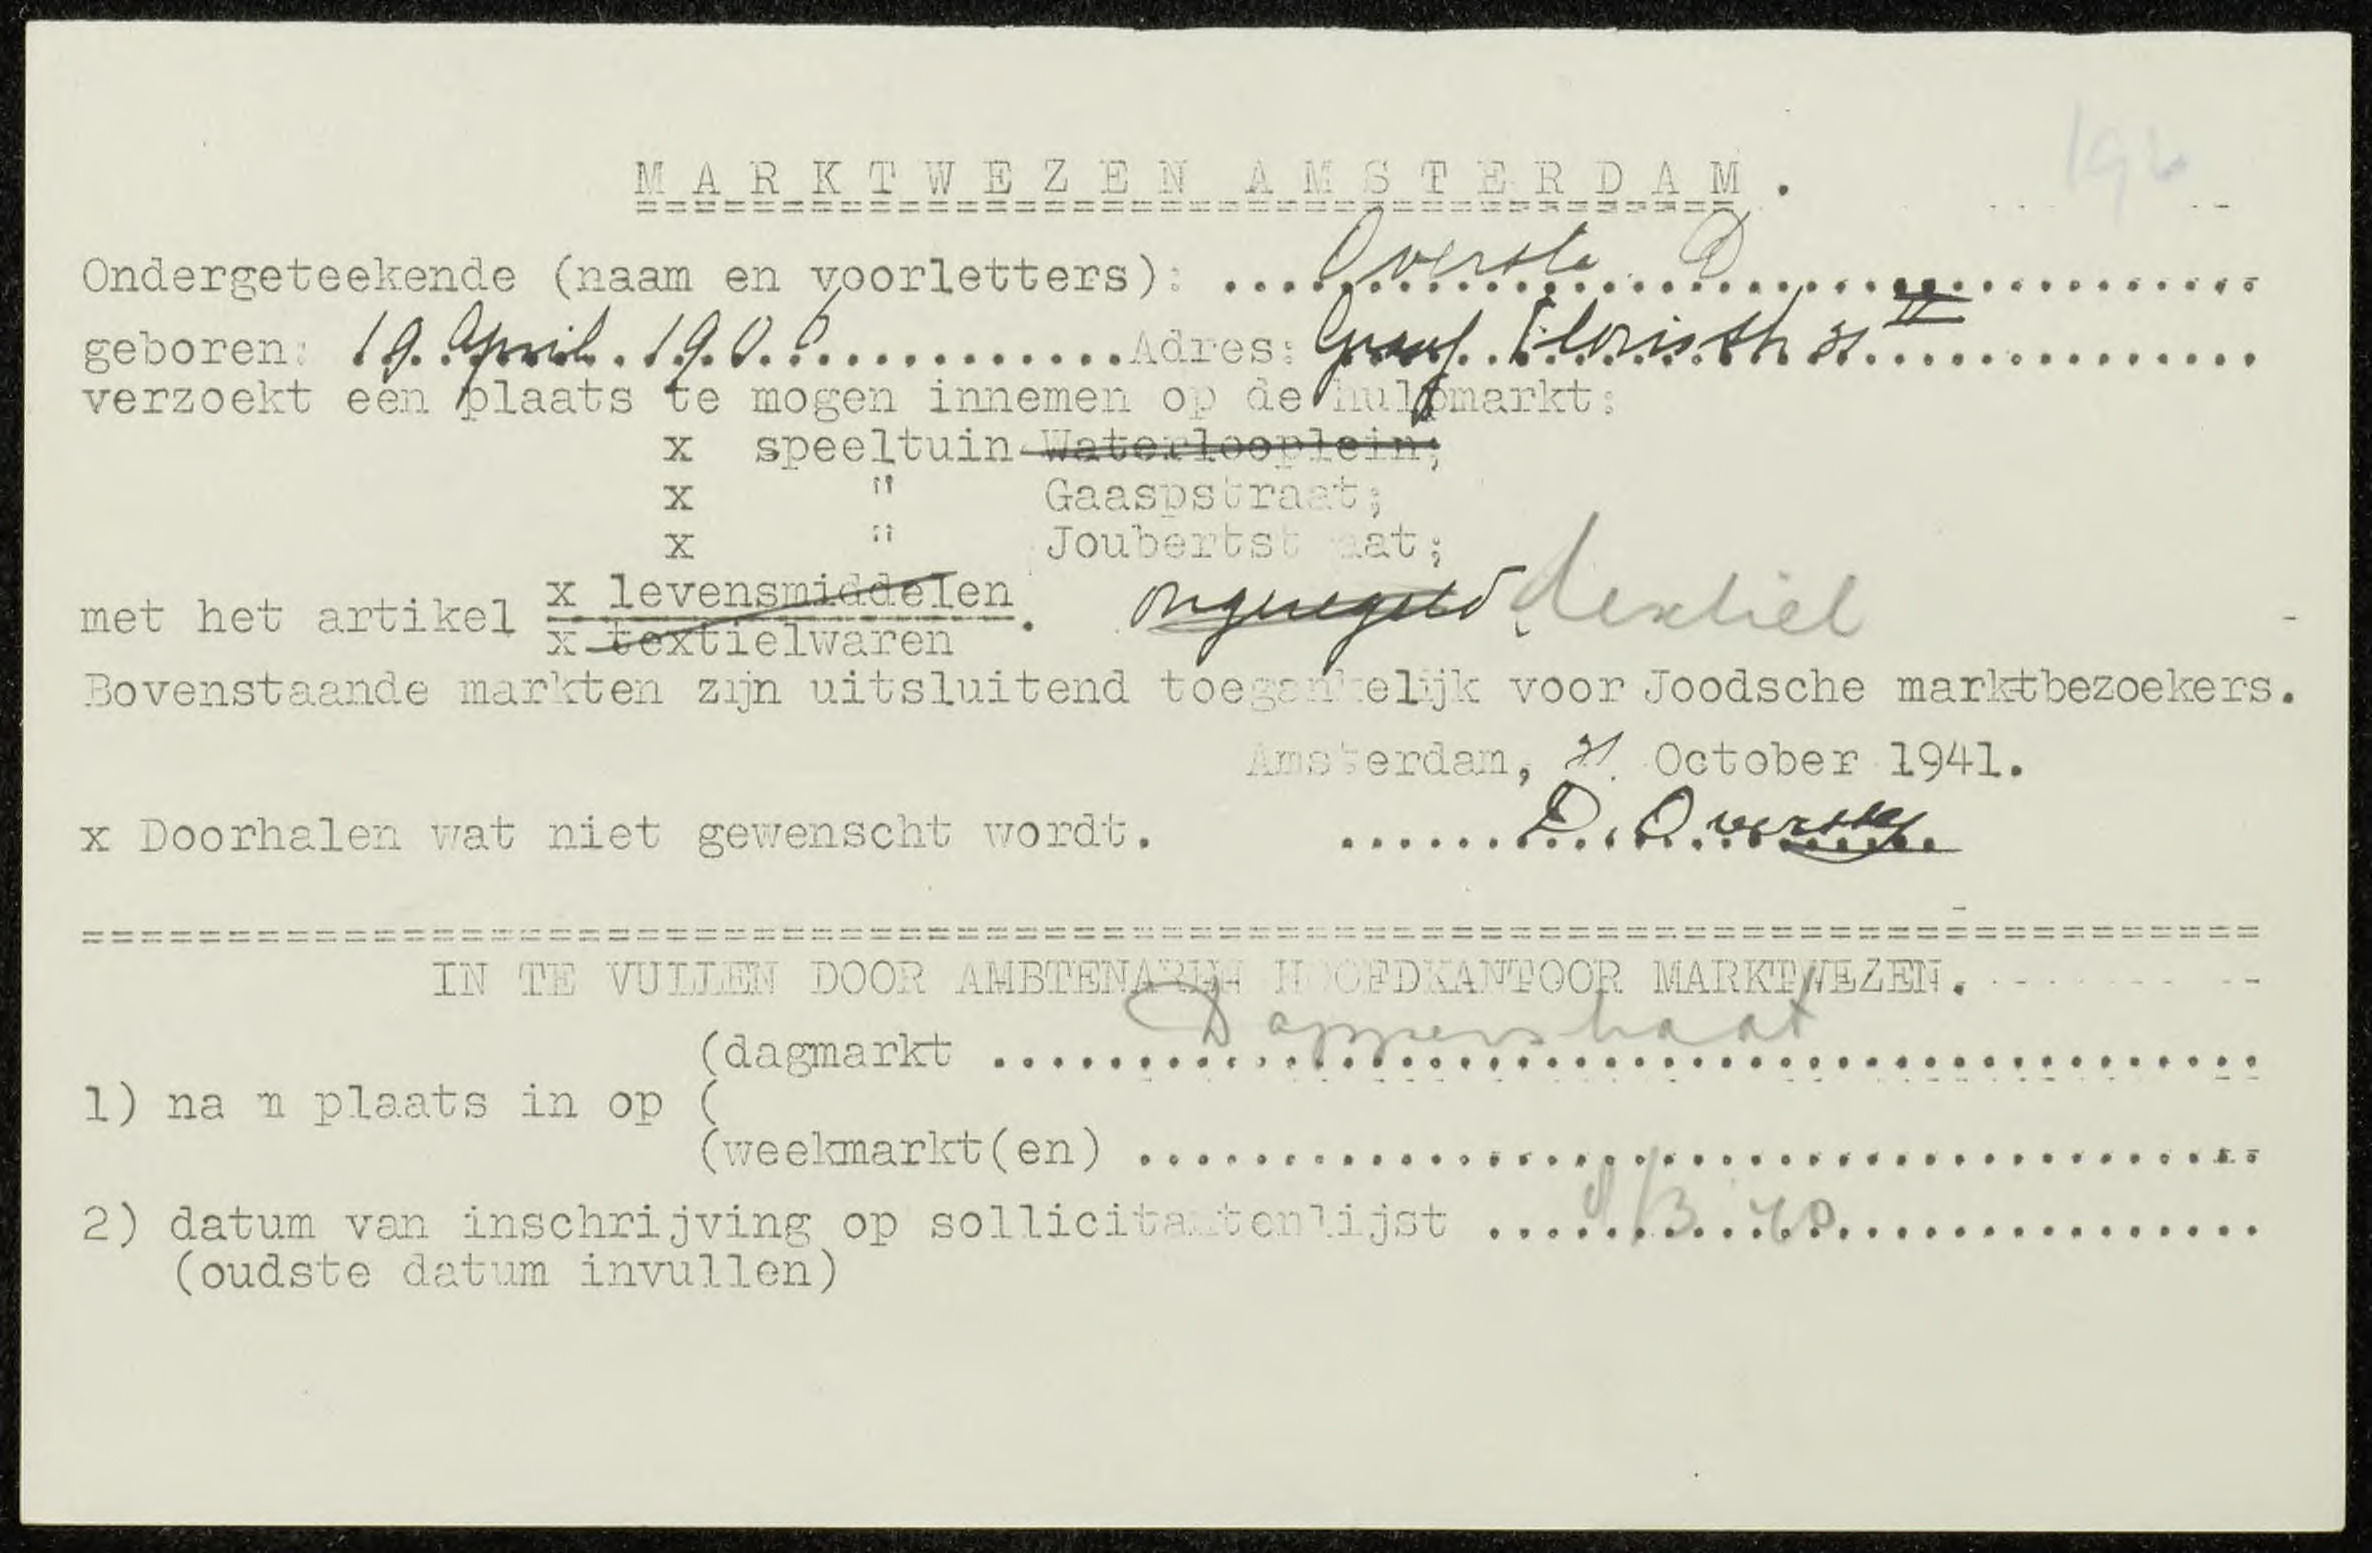 MARKTWEZEN AMSTERDAM.
Ondergeteekende (naam en voorletters): Overste D
geboren: 19 April 1906 Adres: Graaf Florisstr 21 II
verzoekt een plaats te mogen innemen op de hulpmarkt:
x speeltuin Waterlooplein;
x " Gaaspstraat;
x " Joubertstraat;
met het artikel x levensmiddelen
x textielwaren. ongeregeld textiel
Bovenstaande markten zijn uitsluitend toegankelijk voor Joodsche marktbezoekers.
Amsterdam, 21 October 1941.
x Doorhalen wat niet gewenscht wordt. D. Overste
IN TE VULLEN DOOR AMBTENAREN HOOFDKANTOOR MARKTWEZEN.
(dagmarkt Dapperstraat
1) na m plaats in op (
(weekmarkt(en)
2) datum van inschrijving op sollicitantenlijst 8/3 40
(oudste datum invullen)